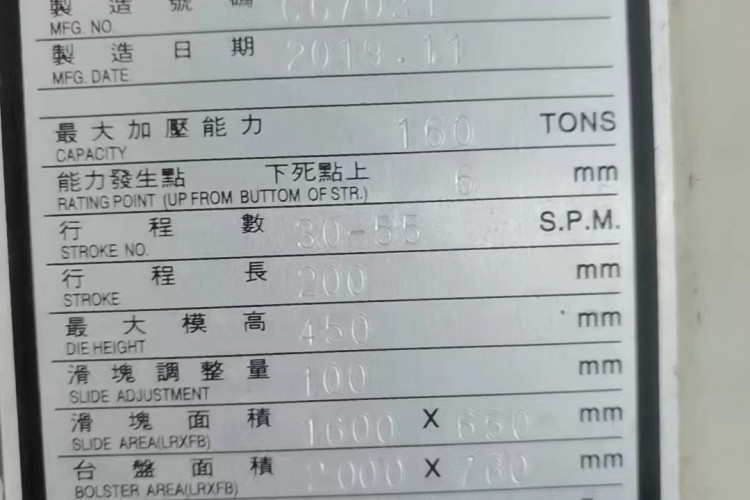 製造號碼
MFG. NO.
製造日期 2019.11
MFG. DATE.
最大加壓能力 160 TONS
CAPACITY
能力發生點 下死點上 6 mm
RATING POINT (UP FROM BUTTOM OF STR.)
行程數 30-55 S.P.M.
STROKE NO.
行程長 200 mm
STROKE
最大模高 450 mm
DIE HEIGHT
滑塊調整量 100 mm
SLIDE ADJUSTMENT
滑塊面積 1600 X 650 mm
SLIDE AREA(LRXFB)
台盤面積 2000 X 760 mm
BOLSTER AREA(LRXFB)